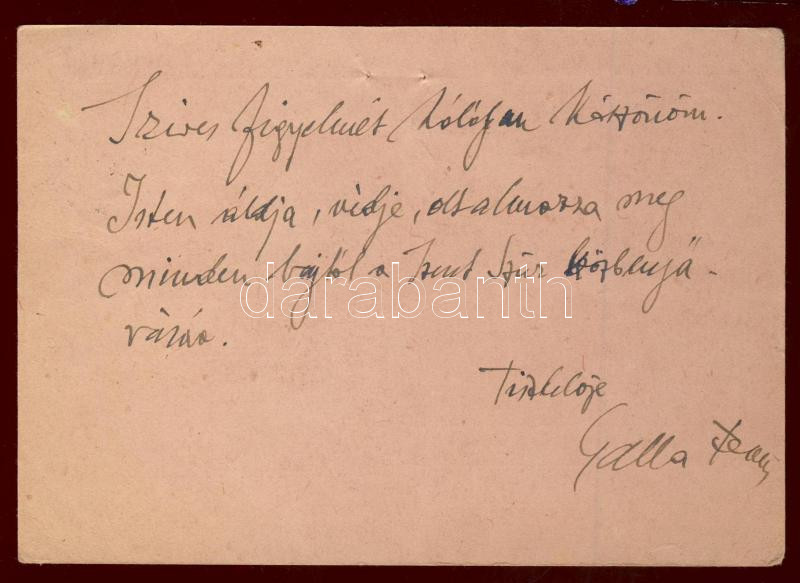 Szives figyelmét hálásan köszönöm.
Isten áldja, védje, oltalmazza meg
minden bajtól a Szent Szűz közbenjá-
rására.
Tisztelője
Galla Ferenc
darabanth